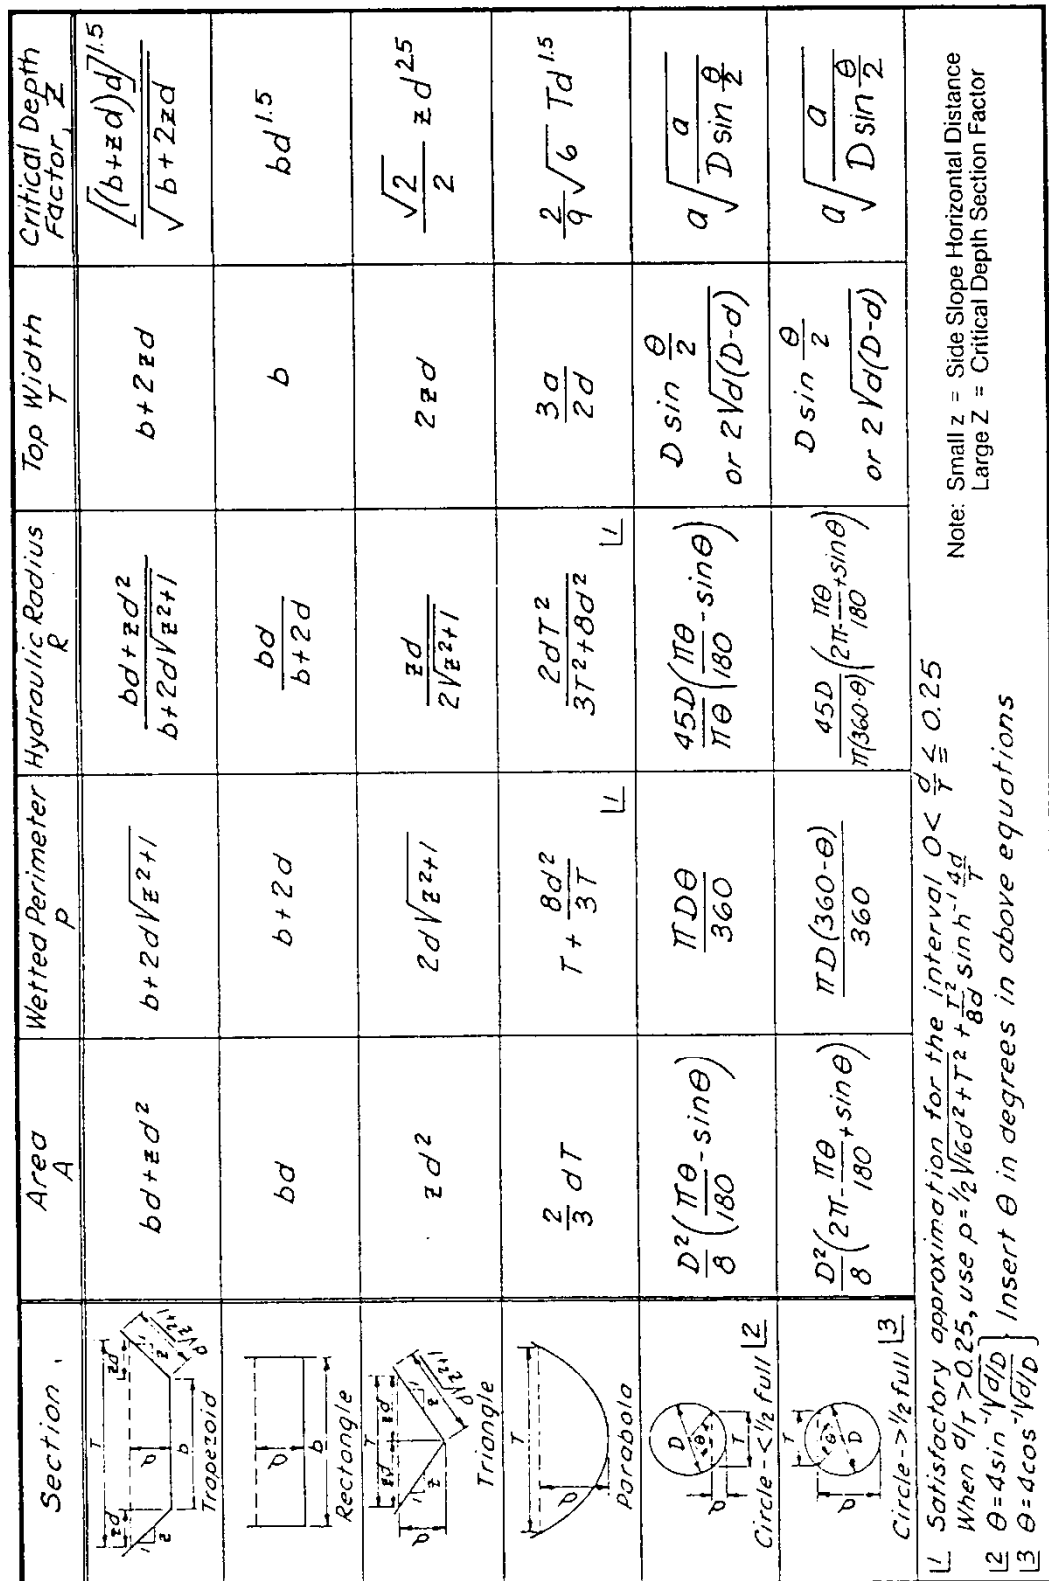 Section
Area A
Wetted Perimeter P
Hydraulic Radius R
Top Width T
Critical Depth Factor, Z
T
zd
zd
d
1
z
1
z
b
d√z²+1
Trapezoid
bd+zd²
b+2d√(z²+1)
(bd+zd²)/(b+2d√(z²+1))
b+2zd
[(b+zd)d]^1.5/√(b+2zd)
d
b
Rectangle
bd
b+2d
bd/(b+2d)
b
bd^1.5
T
zd
zd
d
1
z
1
z
d√z²+1
Triangle
zd²
2d√(z²+1)
zd/(2√(z²+1))
2zd
(√2/2) zd^2.5
T
d
Parabola
2/3 dT
T + 8d²/3T |1
2dT²/(3T²+8d²) |1
3a/2d
2/9 √6 Td^1.5
D
θ
T
d
Circle-<1/2 full |2
D²/8 (πθ/180 - sinθ)
πDθ/360
45D/πθ (πθ/180 - sinθ)
D sin θ/2
or 2√(d(D-d))
a√(a/(D sin θ/2))
T
θ
D
d
Circle->1/2 full |3
D²/8 (2π - πθ/180 + sinθ)
πD(360-θ)/360
45D/(π(360-θ)) (2π - πθ/180 + sinθ)
D sin θ/2
or 2√(d(D-d))
a√(a/(D sin θ/2))
|1 Satisfactory approximation for the interval 0< d/T ≦ 0.25
When d/T >0.25, use p=1/2√(16d²+T²) + T²/8d sinh⁻¹ 4d/T
|2 θ=4sin⁻¹√(d/D)
|3 θ=4cos⁻¹√(d/D)
} Insert θ in degrees in above equations
Note: Small z = Side Slope Horizontal Distance
Large Z = Critical Depth Section Factor